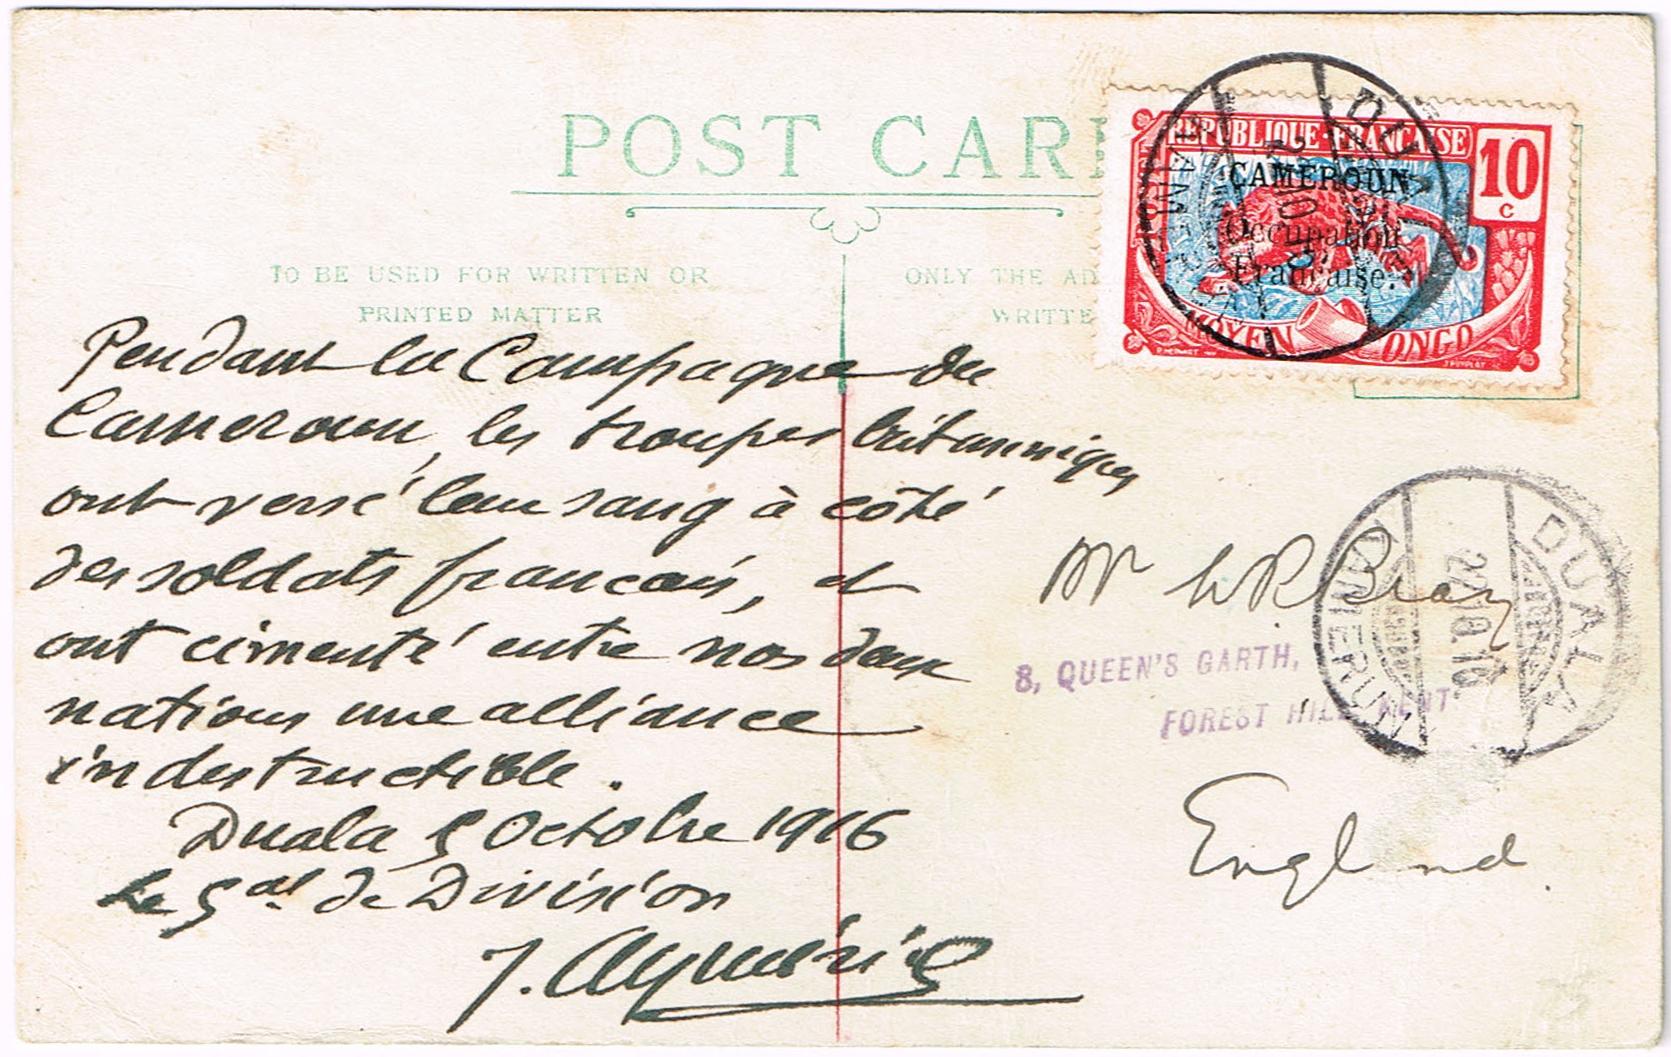 POST CAR
TO BE USED FOR WRITTEN OR
PRINTED MATTER
ONLY THE AD
WRITTE
REPUBLIQUE FRANÇAISE
10
c
CAMEROUN
Occupation
Française.
MOYEN CONGO
Pendant la Campagne du
Cameroun, les troupes britanniques
ont versé leur sang à côté
des soldats francais, et
ont cimenté entre nos deux
nations une alliance
indestructible.
Duala 5 Octobre 1916
Le Gal de Division
J. Aymérich
Mr W R Bray
8, QUEEN'S GARTH,
FOREST HILL KENT
England.
DUALA
22.10.16.
KAMERUN